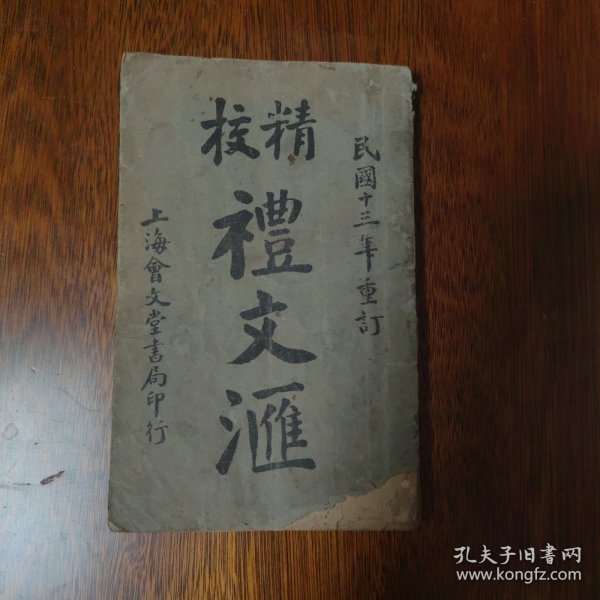 民國十三年重訂
精校
禮文滙
上海會文堂書局印行
孔夫子旧書网
www.kongfz.com